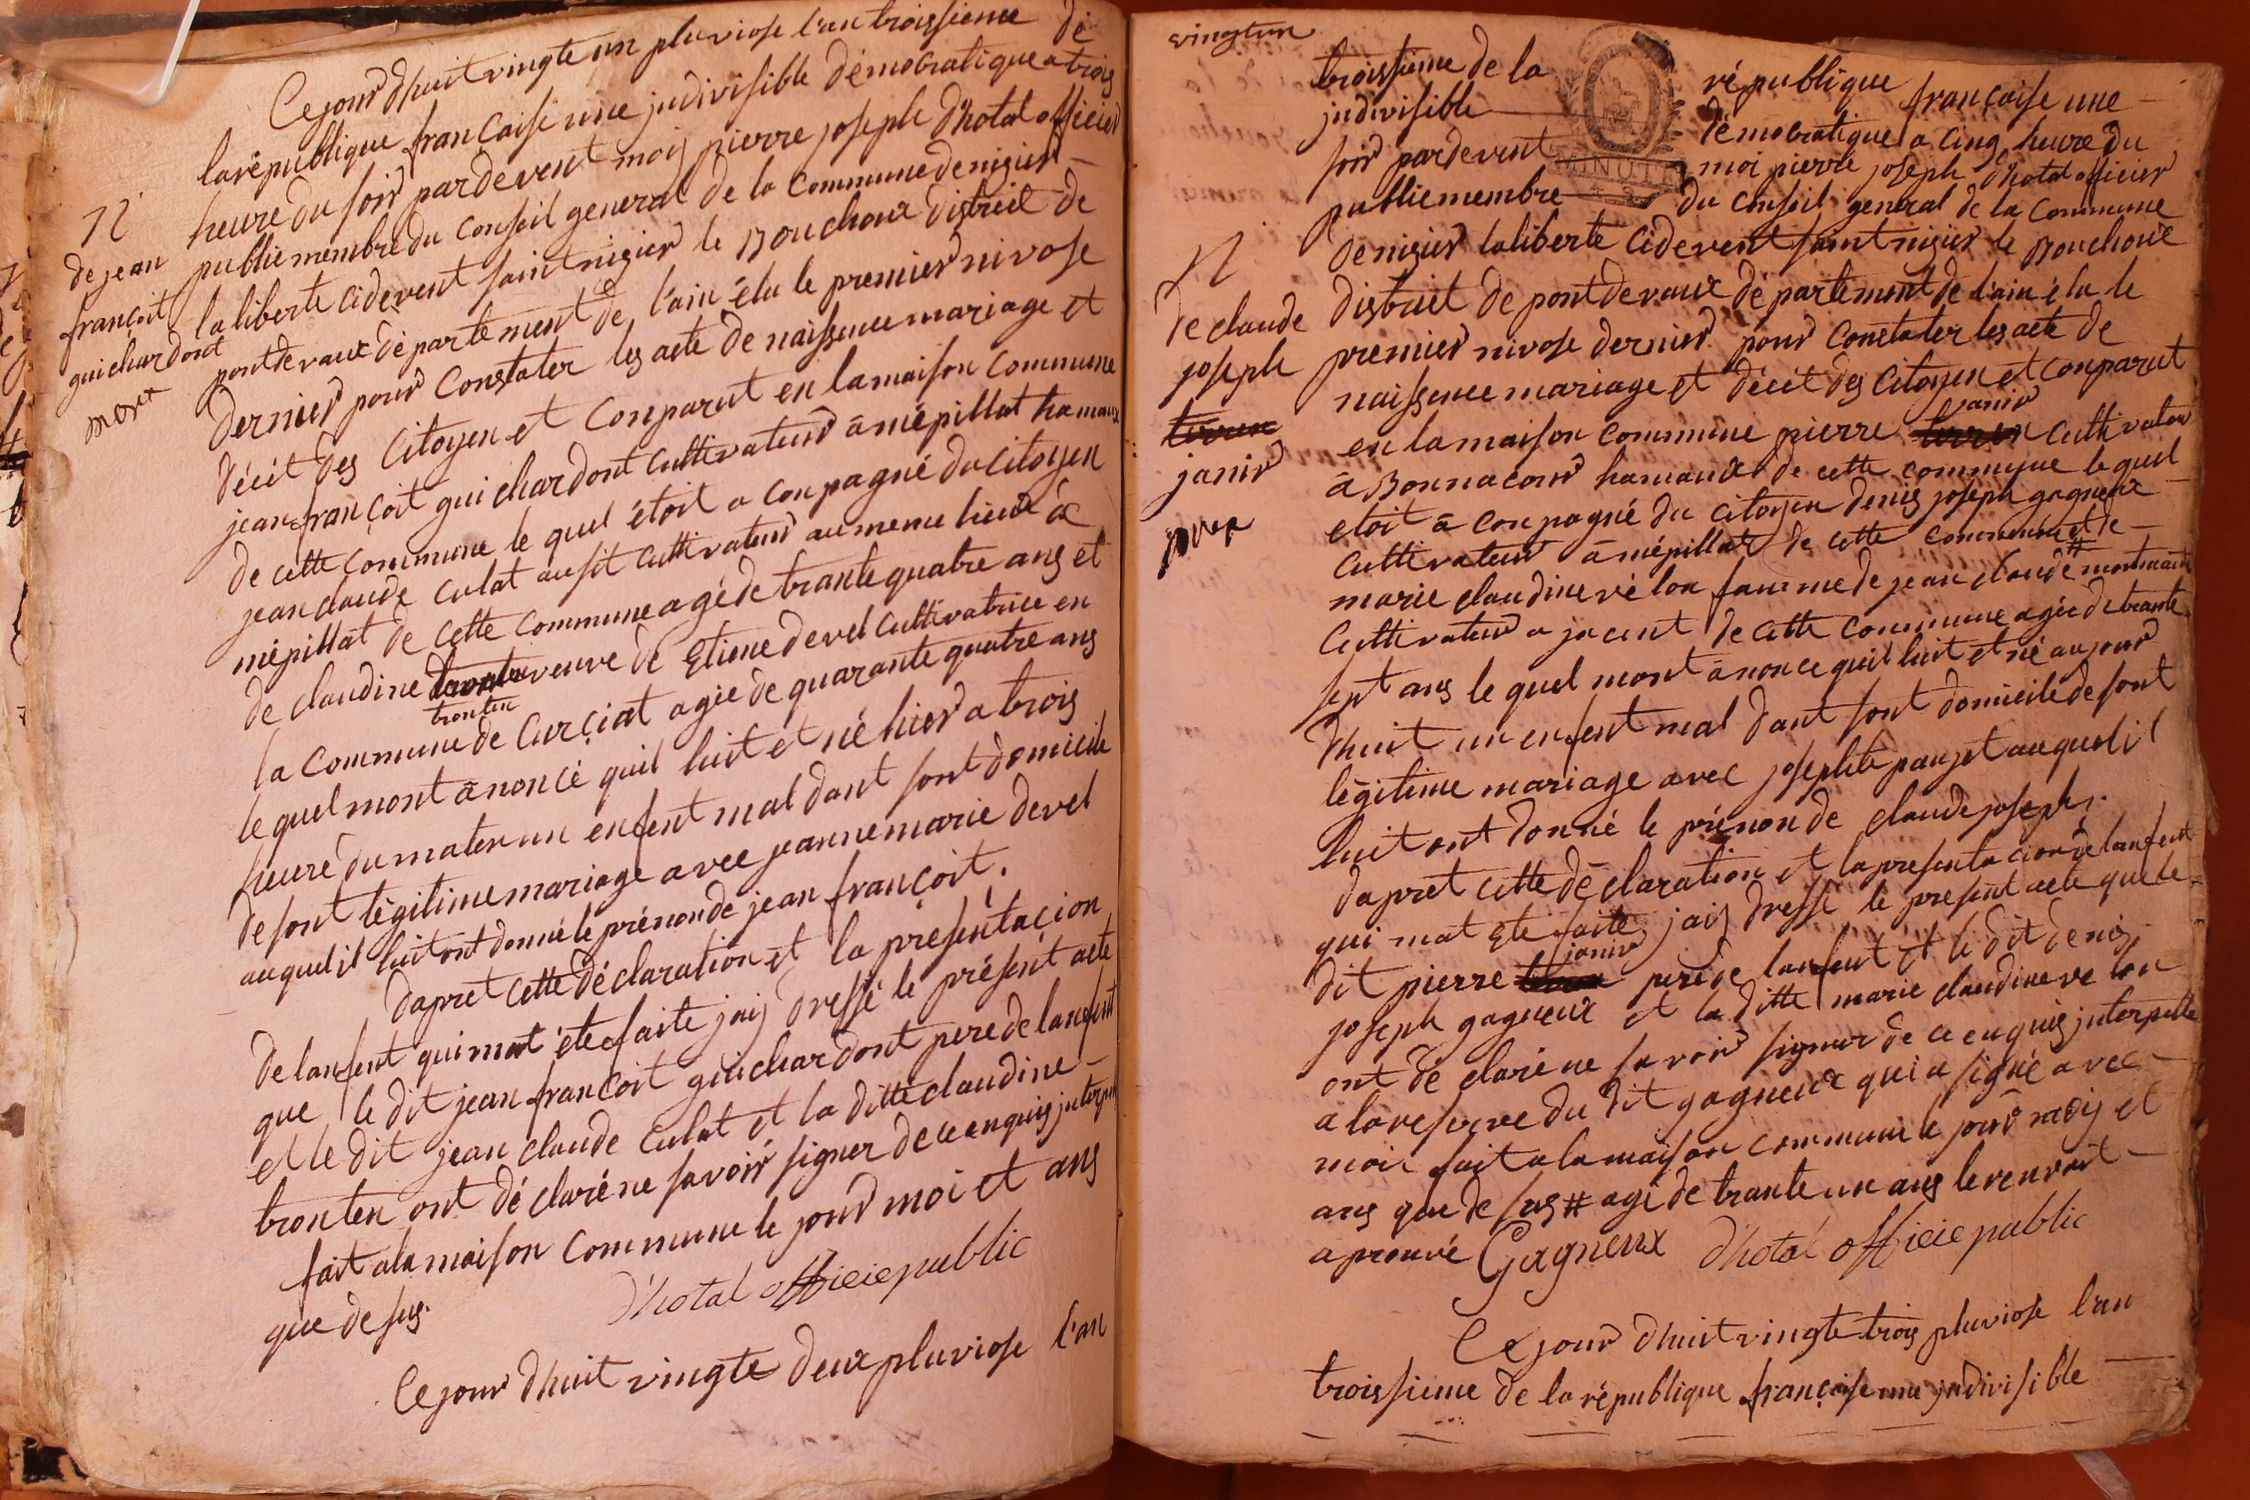 Ce jour dhuit vingte un pluviose l'an troissieme de
la république françaisse une jndivisible démocratique a trois
heure du soir pardevent moij pierre joseph d'hotal officier
public membre du conseil general de la commune de nizier
la liberte cidevent saint nizier le Bouchoux district de
pontdevaux département de l'ain élu le premier nivose
dernier pour constater les acte de naissence mariage et
décit des citoyen et conparut en la maison commune
jean françoit guichardont cultivateur à mépillat hamaux
de cette commune le quel étoit a conpagné du citoyen
jean claude culat ausit cultivateur au meme lieux de
mépillat de cette commune agé de trante quatre ans et
de claudine tronten veuve de Etiene devel cultivatrice en
la commune de Curçiat agée de quarante quatre ans
le quel mont ânoncé quil luit et né hier a trois
heure du maten un enfent mal dant sont domicile
de sont légitime mariage avec jeanne marie devel
auquel il luit ont donné le prénon de jean françoit.
dapret cette déclaration et la présentacion
de lanfent qui mat éte faite jaij dressé le présent acte
que le dit jean françoit guichardont pere de lanfent
et le dit jean claude culat et la ditte claudine
tronten ont déclaré ne savoir signer de ce enquis jnterpellé
fait a la maison commune le jour moi et ans
que desus.
d'hotal officie public
N
de jean
françoit
guichardont
mort
Ce jour dhuit vingte deux pluviose l'an
vingtun
troissieme de la république françaisse une
jndivisible démocratique a cinq heure du
soir pardevent moi pierre joseph d'hotal officier
public membre du conseil general de la commune
de nizier la liberte cidevent saint nizier le Bouchoux
district de pontdevaux département de l'ain élu le
premier nivose dernier pour constater les acte de
naissence mariage et décit des citoyen et conparut
en la maison commune pierre janir cultivateur
à Bonnacour hamaux de cette commune le quel
etoit a conpagné du citoyen denis joseph gagneux
cultivateur à mépillat de cette commune # et de
marie claudine vélon famme de jean claude
cultivateur a jacent de cette commune agée de trante
sept ans le quel mont ânoncé quil luit et né au jour
dhuit un enfent mal dant sont domicile de sont
légitime mariage avec josephte paujet auquel il
luit ont donné le prénon de claude joseph.
dapret cette déclaration et la presentacion de lanfent
qui mat éte faite jaij dressé le present acte que le
dit pierre janir pere de lanfent et le dit denis
joseph gagneux et la ditte marie claudine vélon
ont déclaré ne savoir signer de ce enquis jnterpellé
a la reserve du dit gagneux qui a signé avec
moi fait a la maison commune le jour moij et
ans que desus # agé de trante un ans le renvoit
aprouvé Gagneux d'hotal officie public
N
de claude
joseph
janir
Ce jour dhuit vingte trois pluviose l'an
troissieme de la république françaisse une jndivisible